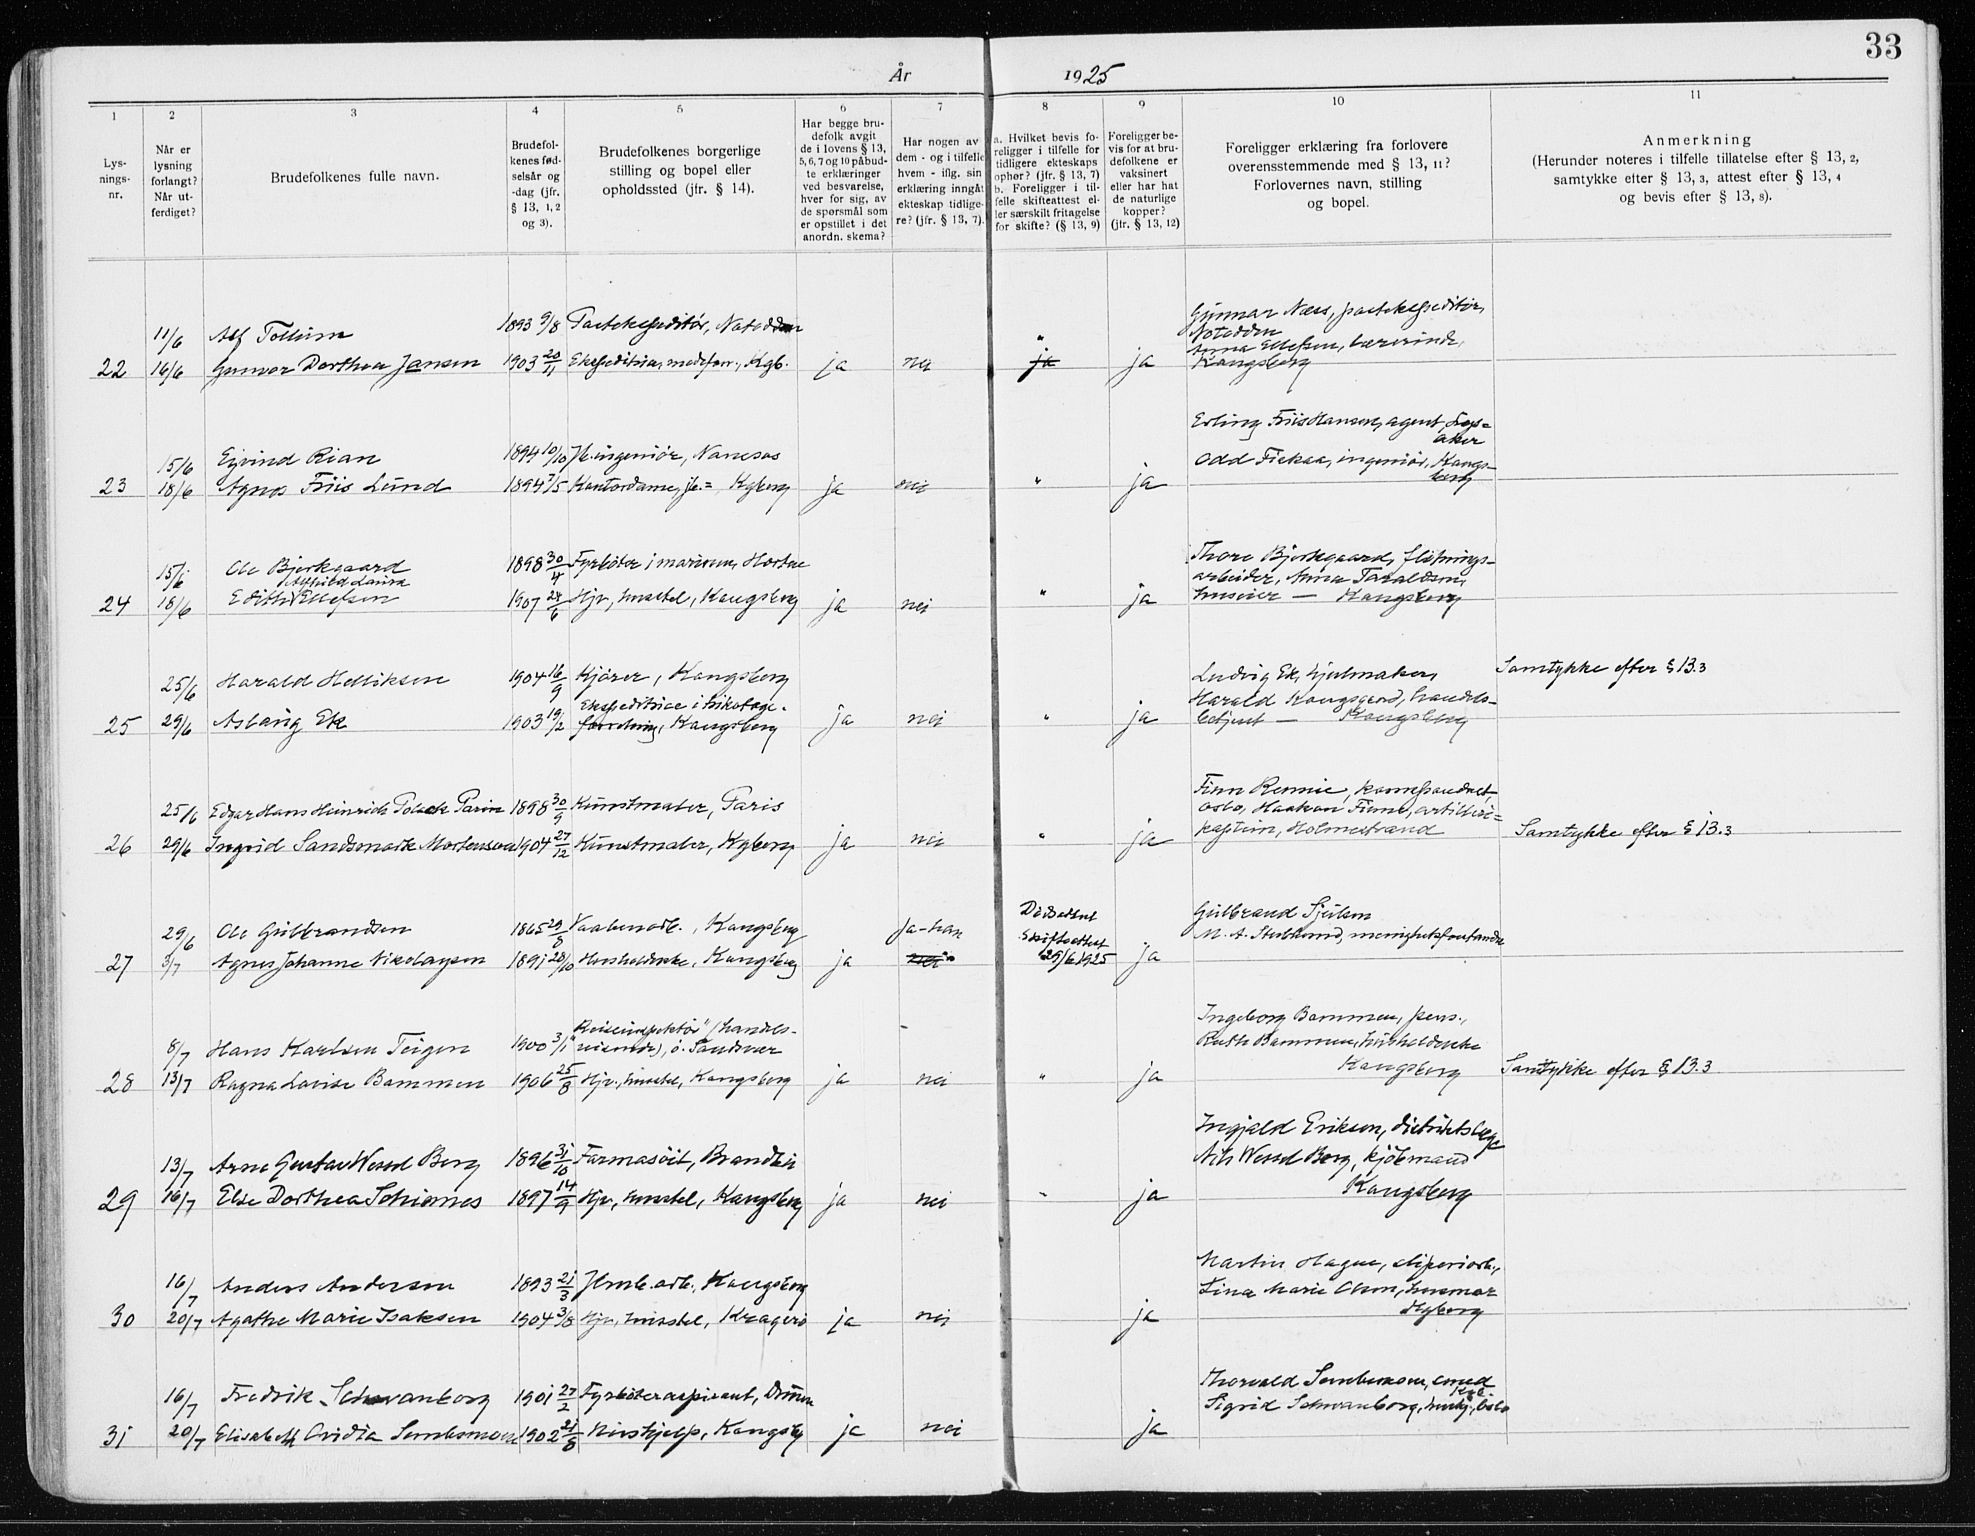 33
År 1925
1 2 3 4 5 6 7 8 9 10 11
Lysnings-nr.
Når er lysning forlangt? Når utferdiget?
Brudefolkenes fulle navn.
Brudefolkenes fødselsår og -dag (jfr. § 13, 1, 2 og 3).
Brudefolkenes borgerlige stilling og bopel eller opholdssted (jfr. § 14).
Har begge brudefolk avgit de i lovens § 13, 5, 6, 7 og 10 påbudte erklæringer ved besvarelse, hver for sig, av de spørsmål som er opstillet i det anordn. skema?
Har nogen av dem - og i tilfelle hvem - iflg. sin erklæring inngått ekteskap tidligere? (jfr. § 13, 7).
a. Hvilket bevis foreligger i tilfelle for tidligere ekteskaps ophør? (jfr. § 13, 7) b. Foreligger i tilfelle skifteattest eller særskilt fritagelse for skifte? (§ 13, 9)
Foreligger bevis for at brudefolkene er vaksinert eller har hat de naturlige kopper? (jfr. § 13, 12)
Foreligger erklæring fra forlovere overensstemmende med § 13, 11? Forlovernes navn, stilling og bopel.
Anmerkning (Herunder noteres i tilfelle tillatelse efter § 13, 2, samtykke efter § 13, 3, attest efter § 13, 4 og bevis efter § 13, 8).
11/6 Alf Tollum 1893 9/8 Postekspeditör, Notodden " Gunnar Næss, postekspeditör, Notodden
22 16/6 Gunvor Dorthea Jansen 1903 20/11 Ekspeditrise, Kgb. ja nei ja ja Anna Ellefsen, lærerinde, Kongsberg
15/6 Ejvind Rian 1894 10/10 ingeniör, Namsos Erling Friis Hansen, agent, Lysaker
23 18/6 Agnes Friis Lund 1894 7/5 Kontordame, Kgberg ja nei " ja Odd Fiskaa, ingeniör, Kongsberg
15/6 Ole Bjerkgaard 1898 30/4 Fyrböter i marinen, Horten Thore Bjerkgaard, flötningsarbeider, Anna Taraldsen,
24 18/6 Edith Ellefsen 1907 24/6 Hjv, husstel, Kongsberg ja nei " ja huseier — Kongsberg
25/6 Harald Helliksen 1904 16/9 Kjörer, Kongsberg Ludvig Ek, hjulmaker, Samtykke efter § 13.3
Harald Kongsgaard, handels-
25 29/6 Aslaug Ek 1903 19/2 Ekspeditrice i trikotageforretning, Kongsberg ja nei " ja betjent — Kongsberg
25/6 Edgar Hans Heinrich Polack Parin 1898 30/9 Kunstmaler, Paris Finn Rennie, korrespondent, Oslo, Haakon Finne, artilleri=
26 29/6 Ingrid Sandsmark Mortensen 1904 27/12 Kunstmaler, Kgberg ja nei " ja kaptein, Holmestrand Samtykke efter § 13.3
29/6 Ole Gulbrandsen 1865 29/8 Vaabenarb., Kongsberg Ja - han Dødsattest Skifteattest Gulbrand Sjulsen
27 3/7 Agnes Johanne Nikolaysen 1891 28/10 Husholderske, Kongsberg ja nei 29/6 1925 ja M. A. Stubberud, menighetsforstander
8/7 Hans Karlsen Teigen 1900 3/1 "Reiseinspektör" (handelsreisende), ö. Sandsvær Ingeborg Bammen, pens., Ruth Bammen, husholderske
28 13/7 Ragna Lovise Bammen 1906 25/8 Hjv., husstel, Kongsberg ja nei " ja Kongsberg Samtykke efter § 13.3
13/7 Arne Gustav Wessel Berg 1896 31/10 Farmasöit, Brandbu Ingjald Eriksen, distriktslæge
Nils Wessel Berg, kjöbmand
29 16/7 Else Dorthea Schiønnes 1897 14/9 Hjv, husstel, Kongsberg ja nei " ja Kongsberg
16/7 Anders Andersen 1893 21/3 Jernb.arb., Kongsberg Martin Hagen, sliperiarb.,
Lina Marie Olsen, husmor
30 20/7 Agathe Marie Isaksen 1904 3/8 Hjv, husstel, Kragerö ja nei ja Kgberg
16/7 Fredrik Schwanborg 1901 27/2 Fyrböteraspirant, Drmn Thorvald Sembsmoen, smed Kgb.
31 20/7 Elisabeth Ovidia Sembsmoen 1902 21/8 Hushjelp, Kongsbg ja nei ja Sigrid Schwanborg, hushj., Oslo